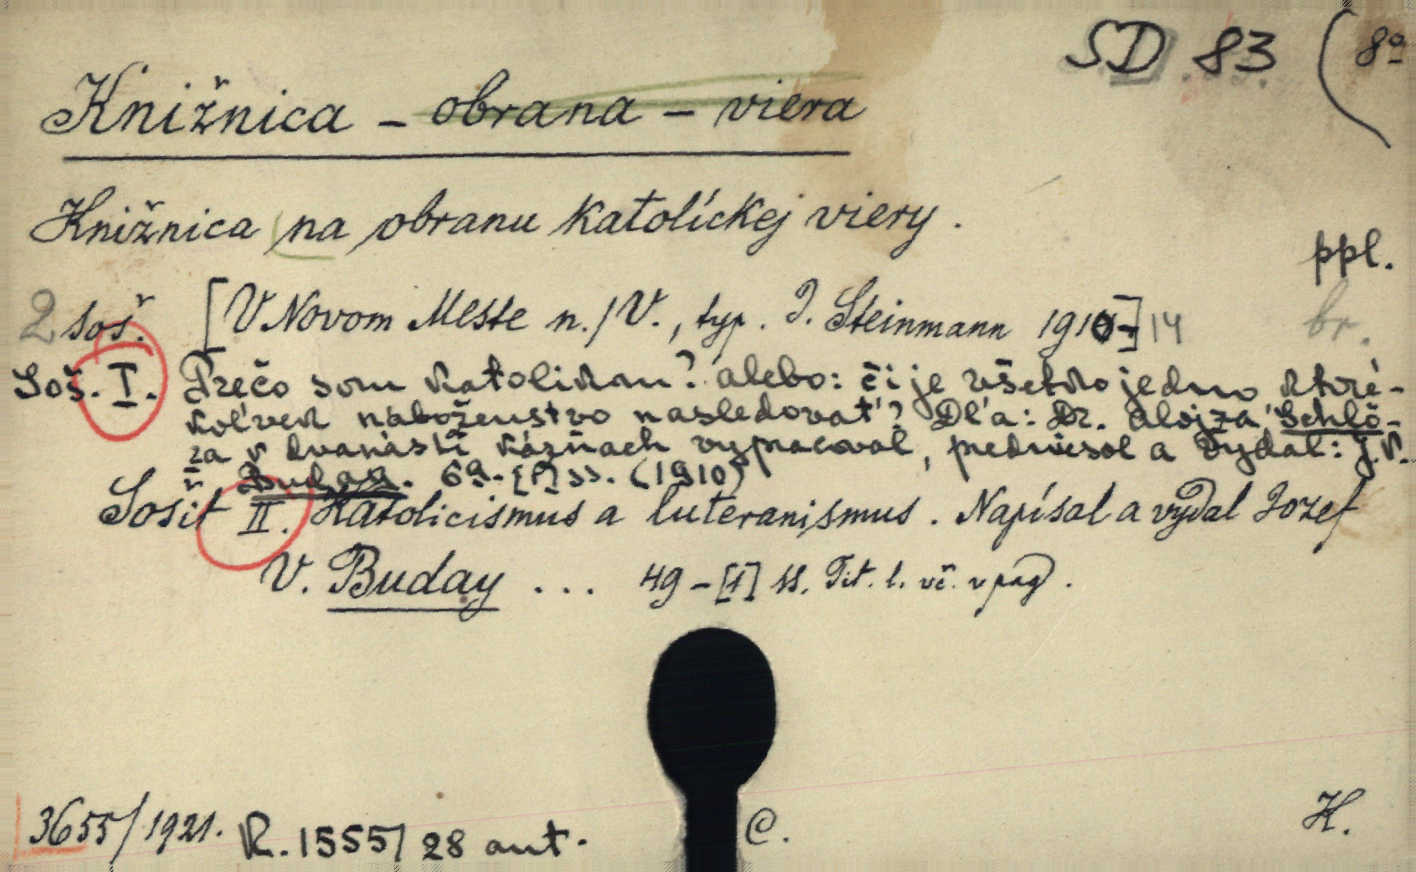 SD 83 (8º
Knižnica - obrana - viera
Knižnica na obranu katolíckej viery.
ppl.
2 soš. [V Novom Meste n./V., typ. J. Steinmann 1910-]14 br.
Soš. I. Prečo som katolíkom? alebo: či je všetko jedno ktoré-
koľvek náboženstvo nasledovať? Dľa: Dr. Alojza Schlö-
za v dvanásti kázňach vypracoval, predniesol a vydal: J.V.
Buday. 69-[1] ss. (1910)
Sošit II. Katolicismus a luteranismus. Napísal a vydal Jozef
V. Buday ... 49-[1] ss. Tit. l. vč. v pag.
3655/1921. R. 1555/28 ant. C. H.